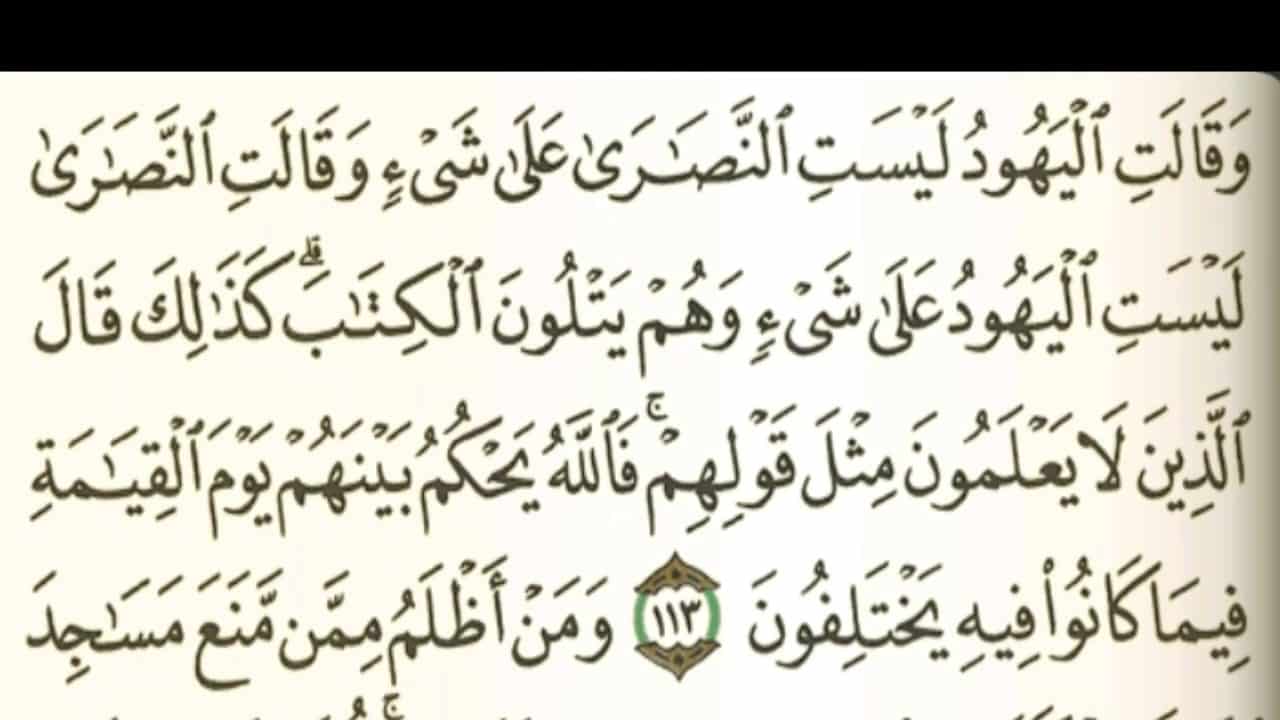 وَقَالَتِ ٱلْيَهُودُ لَيْسَتِ ٱلنَّصَـٰرَىٰ عَلَىٰ شَىْءٍ وَقَالَتِ ٱلنَّصَـٰرَىٰ
لَيْسَتِ ٱلْيَهُودُ عَلَىٰ شَىْءٍ وَهُمْ يَتْلُونَ ٱلْكِتَـٰبَ ۗ كَذَٰلِكَ قَالَ
ٱلَّذِينَ لَا يَعْلَمُونَ مِثْلَ قَوْلِهِمْ ۚ فَٱللَّهُ يَحْكُمُ بَيْنَهُمْ يَوْمَ ٱلْقِيَـٰمَةِ
فِيمَا كَانُوا۟ فِيهِ يَخْتَلِفُونَ ١١٣ وَمَنْ أَظْلَمُ مِمَّن مَّنَعَ مَسَـٰجِدَ